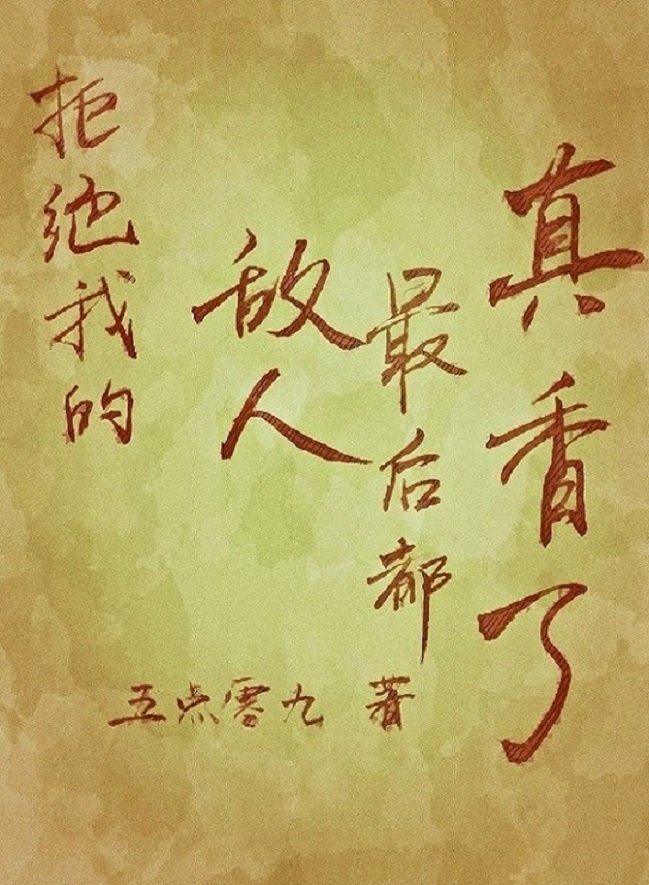 拒绝我的
敌人
最后都
真香了
五点零九 著